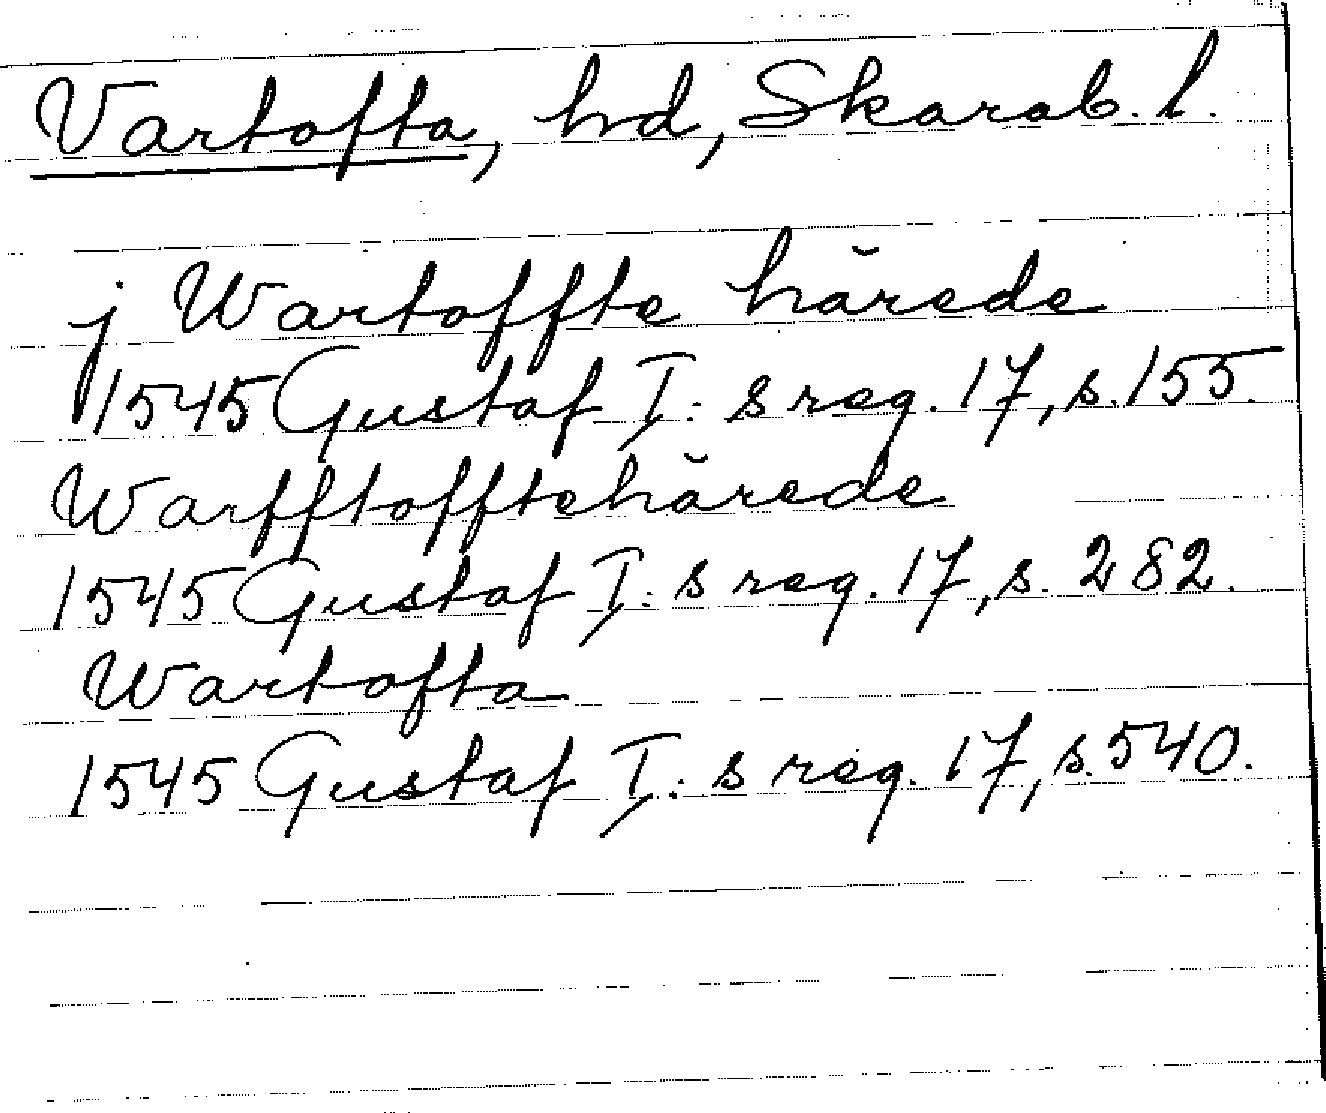 Vartofta, hd, Skarab. l.
j Wartoffte härede
1545 Gustaf I: s reg. 17, s. 155.
Warfftofftehärede
1545 Gustaf I: s reg. 17, s. 282.
Wartofta
1545 Gustaf I: s reg. 17, s. 540.